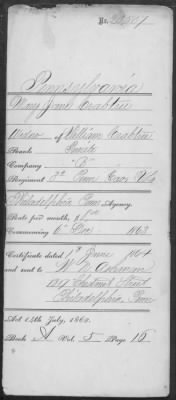 No.
Pennsylvania
Mary Jane Crabtree
Widow of William Crabtree
Rank Private
Company "B"
Regiment 3d Penn
Philadelphia Penn Agency.
Rate per month, $8
Commencing 6" Dec 1863
Certificate dated 1st June 1864
and sent to
Chestnut Street
Philadelphia Penn
Act 14th July, 1862.
Book A Vol. 5 Page 15